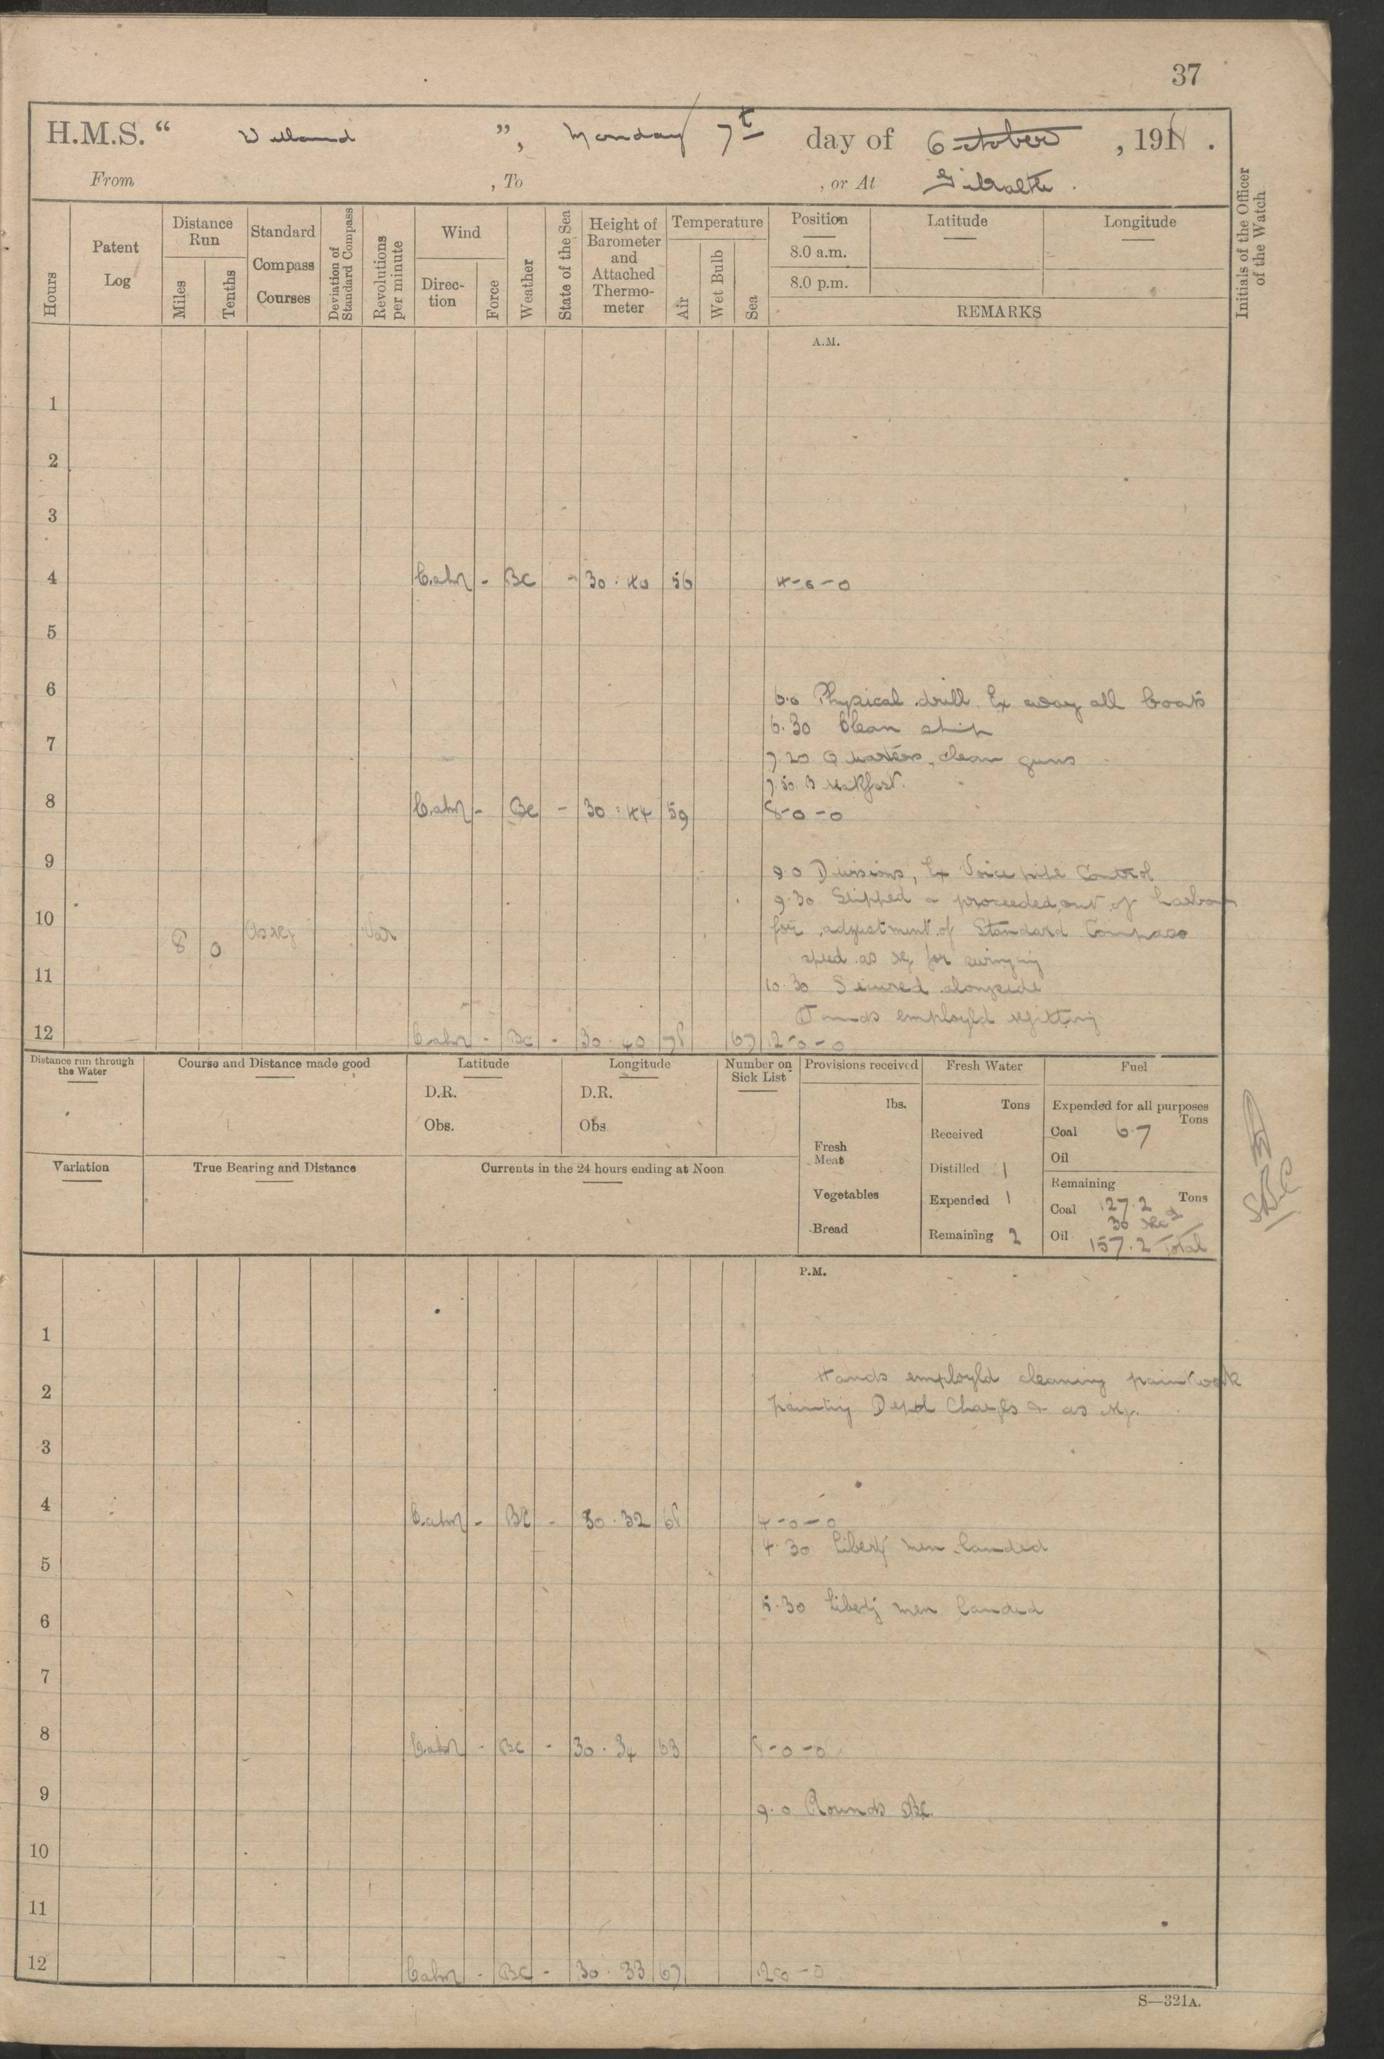 37
H.M.S. “ Welland ”, Monday 7th day of October , 1918 .
From , To , or At Gibralta .
Hours
Patent Log
Distance Run
Miles
Tenths
Standard Compass Courses
Deviation of Standard Compass
Revolutions per minute
Wind
Direction
Force
Weather
State of the Sea
Height of Barometer and Attached Thermometer
Temperature
Air
Wet Bulb
Sea
Position Latitude Longitude
8.0 a.m.
8.0 p.m.
REMARKS
Initials of the Officer of the Watch
A.M.
1
2
3
4 Calm - BC - 30.40 56 4-0-0
5
6
6.0 Physical drill Ex away all boats
6.30 Clean ship
7
7.20 Quarters, clean guns
7.50 Breakfast.
8 Calm - BC - 30.44 59 8-0-0
9
9.0 Divisions, Ex Voice pipe Control
9.30 Slipped & proceeded out of harbour
10 8 0 Var
for adjustment of Standard Compass
speed as req for swinging
11
10.30 Secured alongside
Hands employd refitting
12 Calm - BC - 30.40 78 67 12-0-0
Distance run through the Water
Course and Distance made good
Latitude
D.R.
Obs.
Longitude
D.R.
Obs
Number on Sick List
Provisions received
lbs.
Fresh Meat
Vegetables
Bread
Fresh Water
Tons
Received
Distilled 1
Expended 1
Remaining 2
Fuel
Expended for all purposes
Tons
Coal 6.7
Oil
Remaining
Coal 127.2 Tons
30 Recd
Oil 157.2 Total
Variation
True Bearing and Distance
Currents in the 24 hours ending at Noon
SBC
P.M.
1
Hands employd cleaning paintwork
2
painting Depth Charges & as req.
3
4 Calm - BC - 30.32 68 4-0-0
4.30 Liberty men landed
5
5.30 Liberty men landed
6
7
8 Calm - BC - 30.34 63 8-0-0
9
9.0 Rounds
10
11
12 Calm - BC - 30.33 67 12-0-0
S—321A.